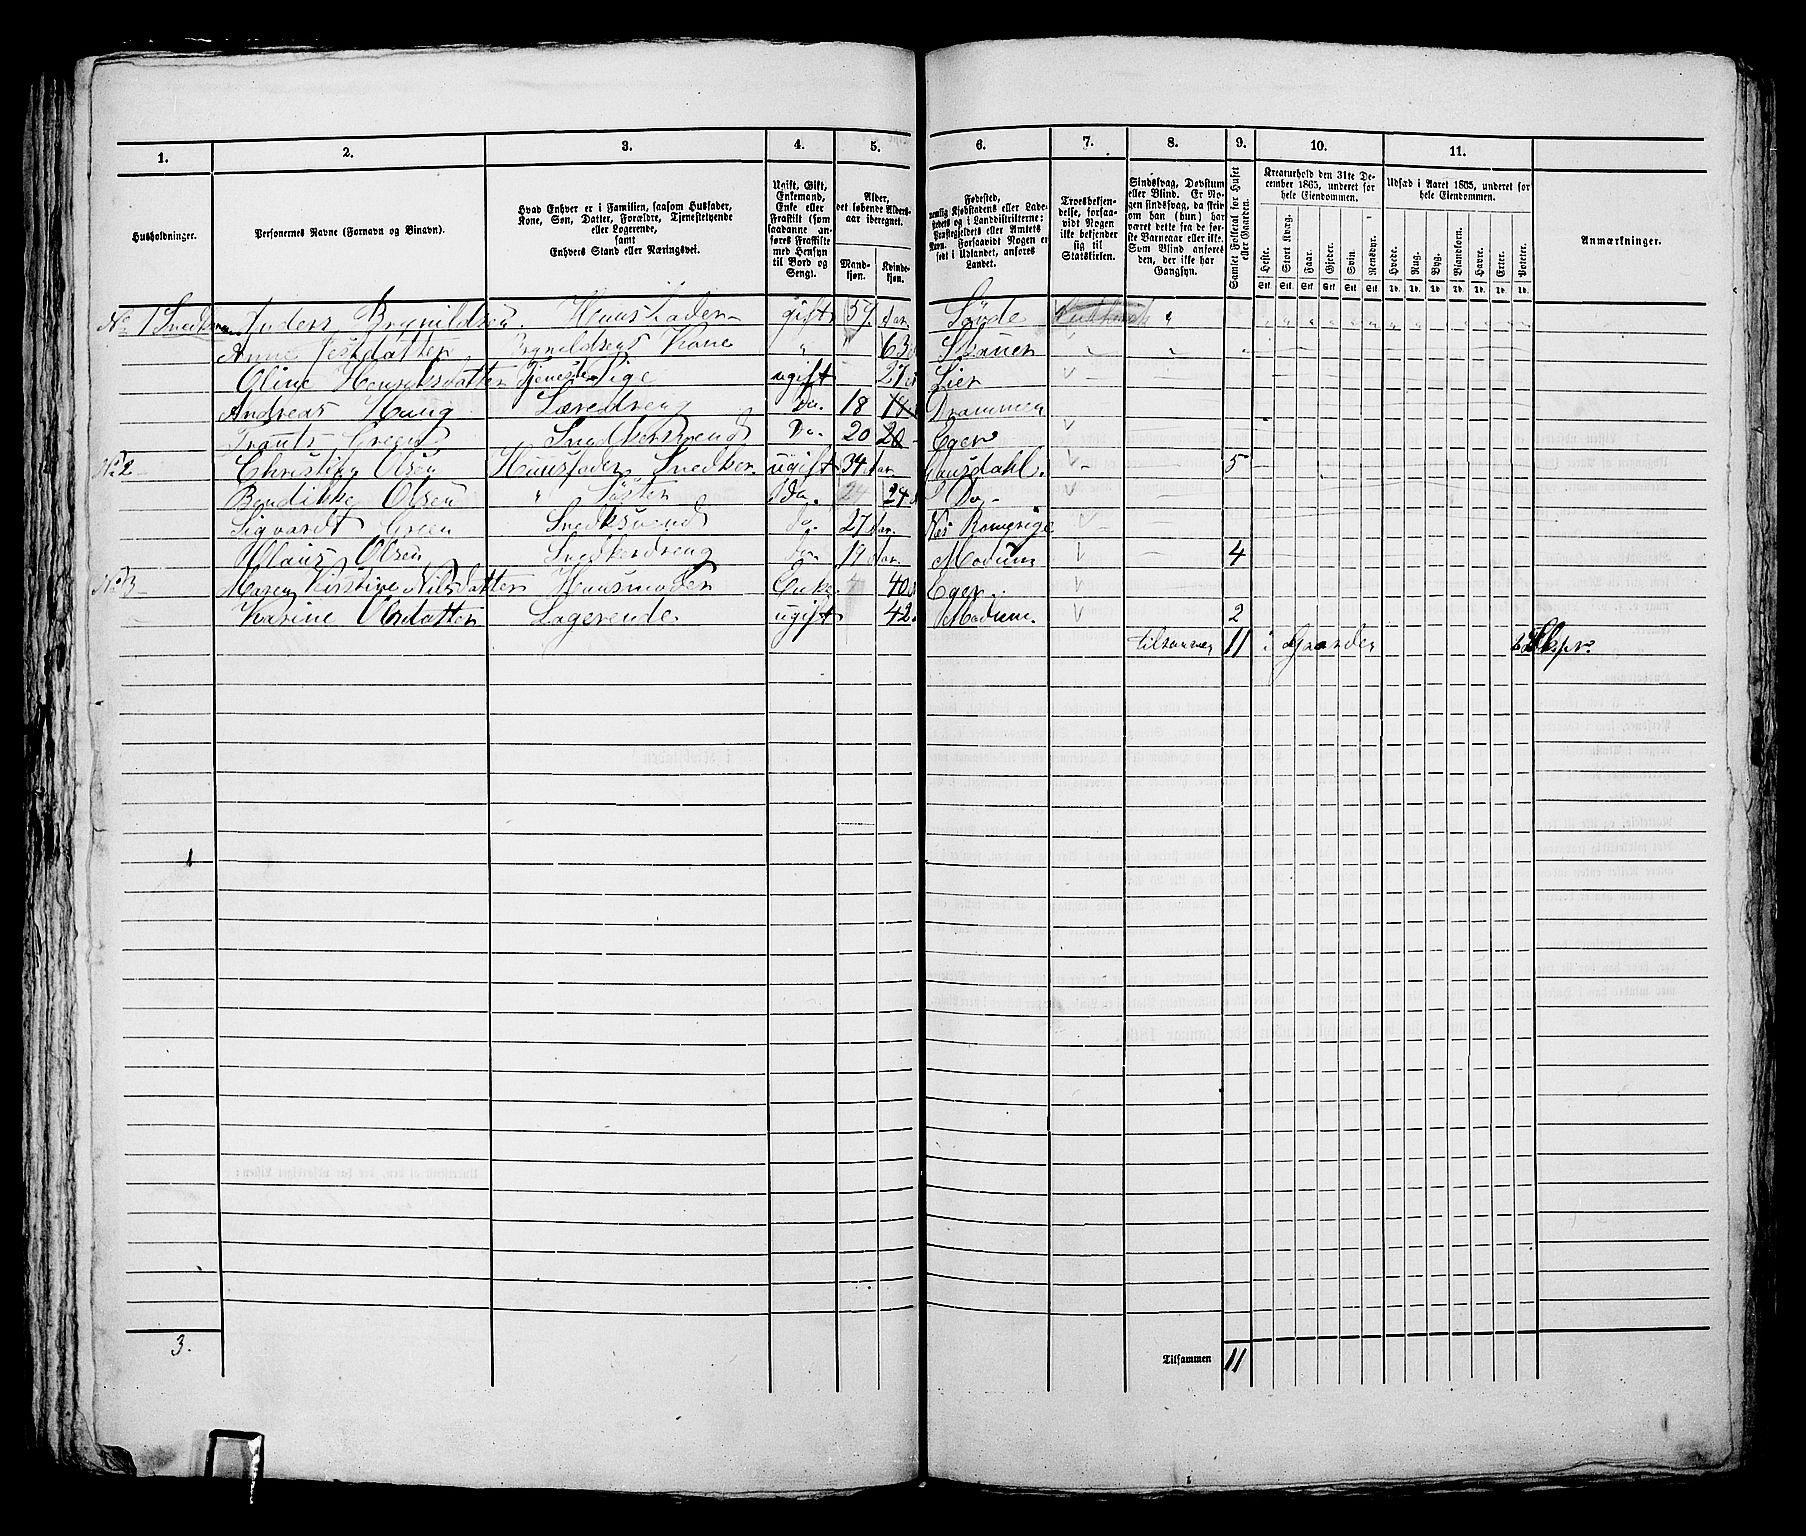 1. 2. 3. 4. 5. 6. 7. 8. 9. 10. 11.
Husholdninger.
Personernes Navne (Fornavn og Binavn).
Hvad Enhver er i Familien, saasom Husfader,
Kone, Søn, Datter, Forældre, Tjenestetyende
eller Logerende,
samt
Enhvers Stand eller Næringsvei.
Ugift, Gift,
Enkemand,
Enke eller
Fraskilt (som
saadanne an-
føres Fraskilte
med Hensyn
til Bord og
Seng).
Alder,
det løbende Alders-
aar iberegnet.
Mand-
kjøn.
Kvinde-
kjøn.
Fødested,
nemlig Kjøbstadens eller Lade-
stedets og i Landdistrikterne:
Præstegjeldets eller Amtets
Navn. Forsaavidt Nogen er
født i Udlandet, anføres
Landet.
Troesbekjen-
delse, forsaa-
vidt Nogen
ikke bekjender
sig til
Statskirken.
Sindssvag, Døvstum
eller Blind. Er No-
gen sindssvag, da skrives
om han (hun) har
været dette fra de før-
ste Barneaar eller ikke.
Som Blind anføres
den, der ikke har
Gangsyn.
Samlet Folketal for Huset
eller Gaarden.
Kreaturhold den 31te De-
cember 1865, underet for
hele Eiendommen.
Heste. Stort Kvæg. Faar. Gjeder. Svin. Rensdyr.
Stk. Stk. Stk. Stk. Stk. Stk.
Udsæd i Aaret 1865, underet for
hele Eiendommen.
Hvede. Rug. Byg. Blandkorn. Havre. Erter. Poteter.
Td. Td. Td. Td. Td. Td. Td.
Anmærkninger.
No 1 Anders Brynildsen Huusfader gift 57 Aar Sande
Anne Brynildsens Kone " 63
Oline Henriksdatter Tjeneste Pige ugift 27 Lier
Andreas Haug Læredreng Do. 18 Drammen
Green Snedkersvend Do. 20 20 Eger
No 2 Christian Olsen Huusfader Snedker ugift 34 Aar. 5
Bendikke Olsen " Søster Do. 24 24 Do
Sigvardt Green Snedksvend do. 27 Aar. Næs Romerige
Claus Olsen Snedkerdreng do. 19 Aar. Modum 4
No 3 Maren Kirstine Nilsdatter Huusmoder Enke 40 Eger
Karine Olsdatter Logerende ugift 42 Modum. 2
tilsammen 11 i Gaarden
1
3.
Tilsammen 11